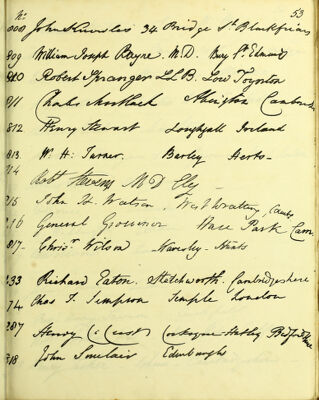 No. 53
John Knowles 34 Bridge St Blackfriars
809 William Joseph Bayne. M.D. Bury St Edmunds
810 Robert Spranger LL.B. Low Toynton
811 Charles Abington
812 Henry Stewart Loughgall Ireland
813 W. H. Turner. Barley Herts
814 Robt Stevens M D Ely
John W. Watson, West Wratting, Cambs
General Grosvenor Hare Park Cam
817. Christr Wilson Navesby Nants
833 Richard Eaton. Stetchworth. Cambridgeshire
74 Chas T. Simpson Temple London
Henry Cust Cockayne Hatley Bedfordshire
818 John Sinclair Edinburgh